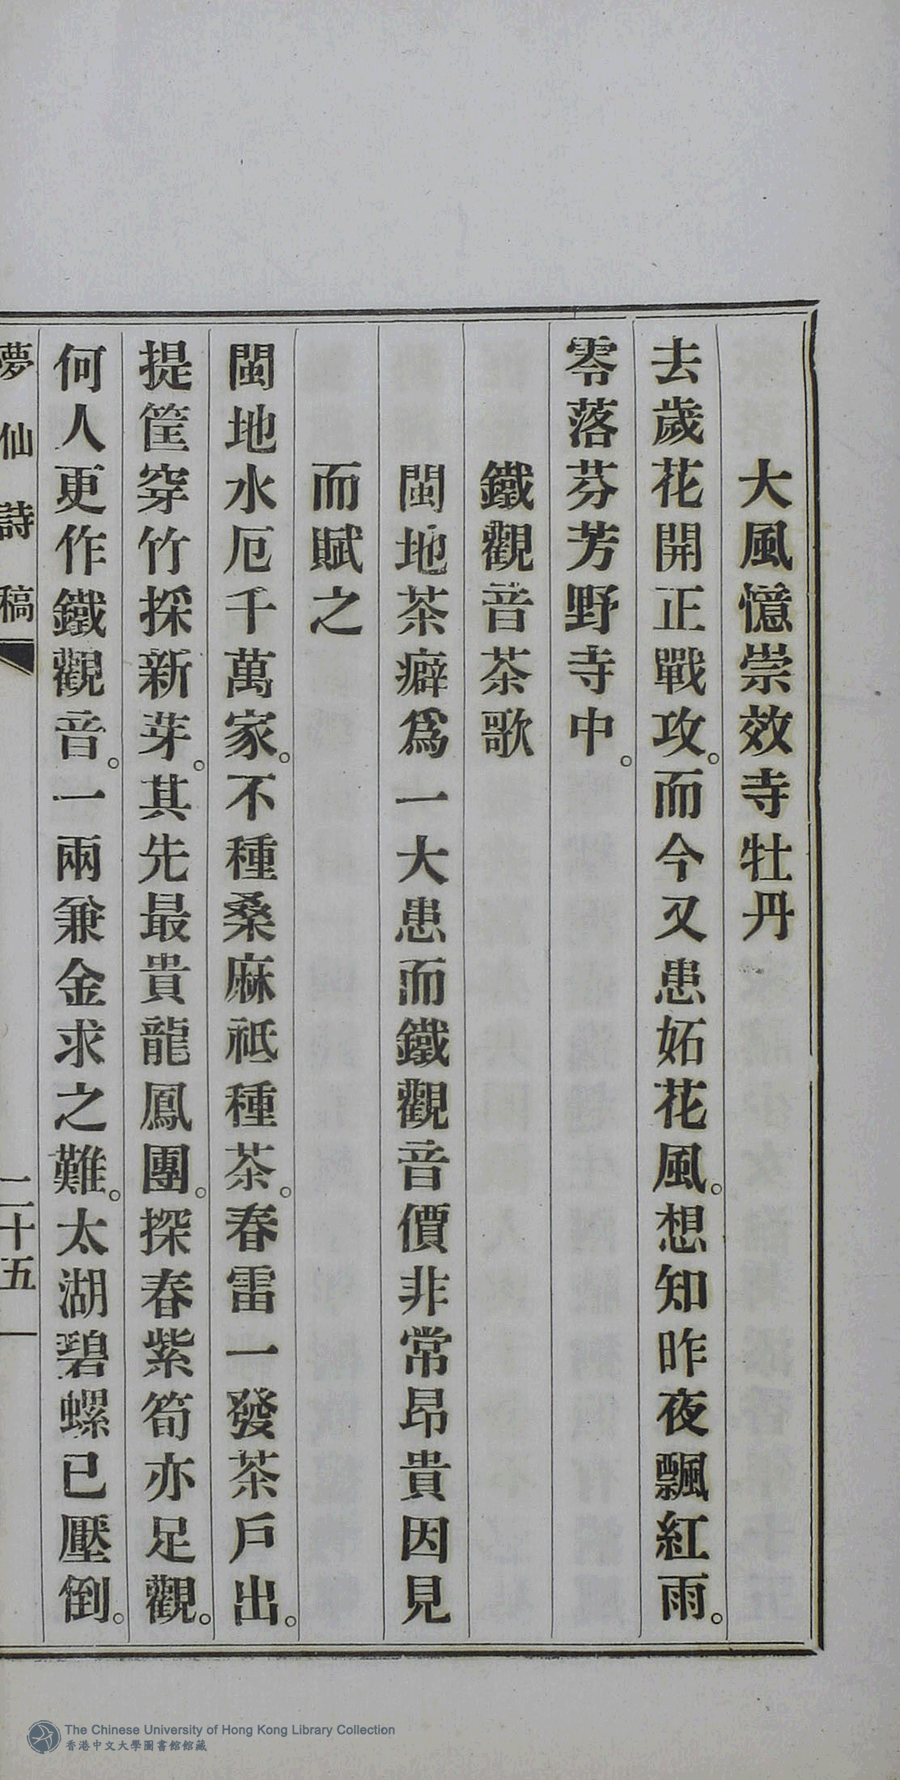 大風憶崇效寺牡丹
去歲花開正戰攻。而今又患妬花風。想知昨夜飄紅雨。
零落芬芳野寺中。
鐵觀音茶歌
閩地茶癖爲一大患而鐵觀音價非常昂貴因見
而賦之
閩地水厄千萬家。不種桑麻祗種茶。春雷一發茶戶出。
提筐穿竹採新芽。其先最貴龍鳳團。探春紫筍亦足觀。
何人更作鐵觀音。一兩兼金求之難。太湖碧螺已壓倒。
夢仙詩稿
二十五
The Chinese University of Hong Kong Library Collection
香港中文大學圖書館館藏